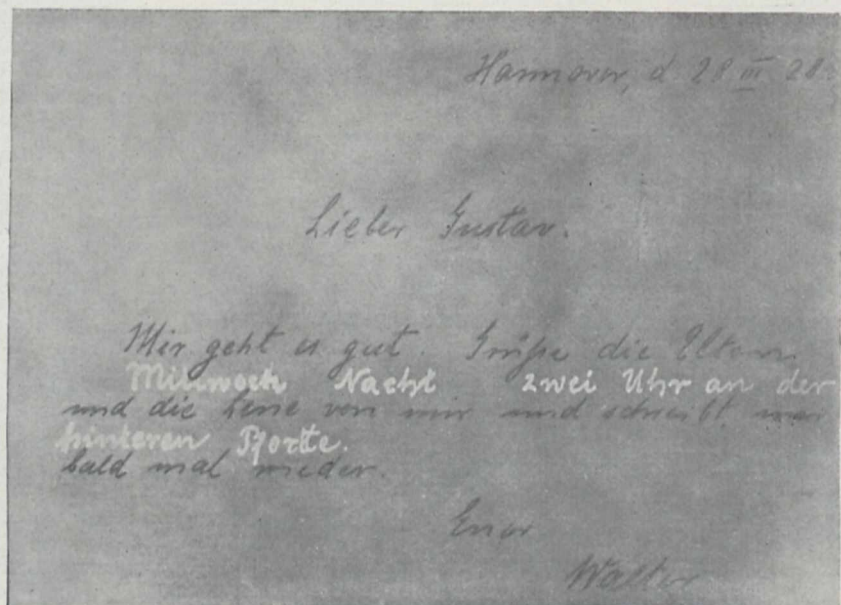 Hannover, d 28 III 28.
Lieber Gustav.
Mir geht es gut. Grüße die Eltern
Mittwoch Nacht zwei Uhr an der
und die Lene von mir und schreibt mir
hinteren Pforte.
bald mal wieder.
Euer
Walter